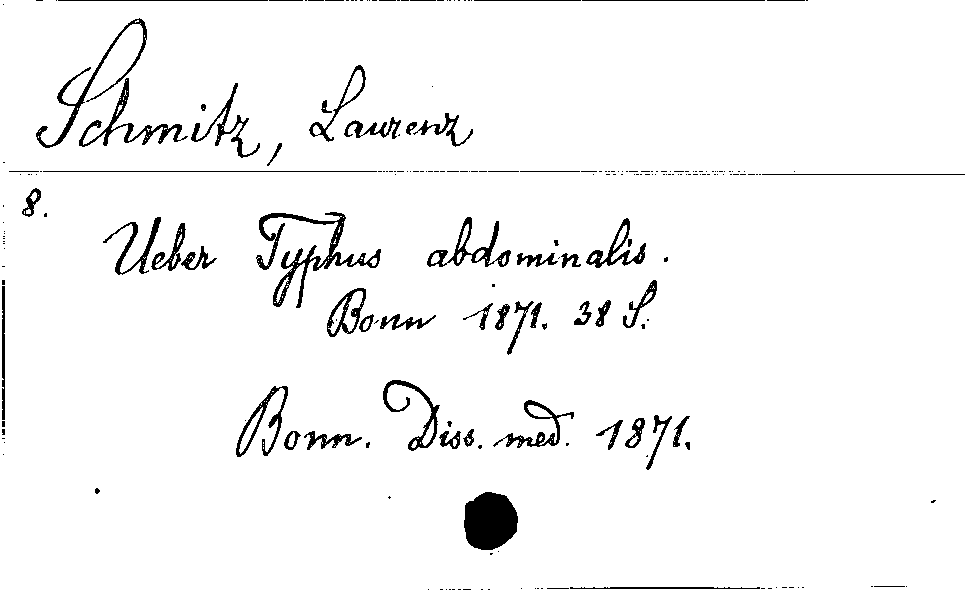 Schmitz, Laurenz
8.
Ueber Typhus abdominalis.
Bonn 1871. 38 S.
Bonn. Diss. med. 1871.